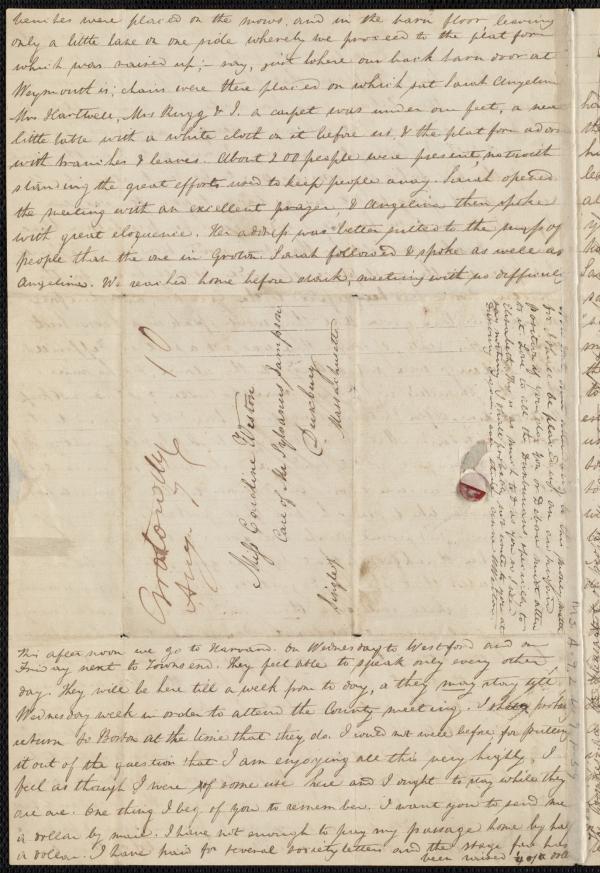 benches were placed on the mows, and in the barn floor leaving
only a little lane on one side whereby we proceed to the platform
which was raised up; – say, just where our back barn door at
Weymouth is; chairs were there placed on which sat Sarah Angelina
Mrs Hartwell, Mrs Rugg & I. a carpet was under our feet, a new
little table with a white cloth on it before us, & the platform adorn
with branches & leaves. About 200 people were present, notwith
standing the great efforts used to keep people away. Sarah opened
the meeting with an excellent prayer & Angelina then spoke
with great eloquence. Her address was better suited to the mass of
people than the one in Groton. Sarah followed & spoke as well as
Angelina. We reached home before dark, meeting with no difficulty
10
Groton
Aug. 7
Miss Caroline Weston
Care of Mr Sylvanus Sampson
Duxbury
Massachusetts
Single
for I shall be placed in an awkward
position if you do. You or Debora must atten
to it. Love to all the Duxburians, especially to
M.S. A.9.2
This afternoon we go to Harvard. On Wednesday to Westford and on
Friday next to Townsend. They feel able to speak only every other
day. They will be here till a week from to day, or they may stay till
Wednesday week in order to attend the County meeting. I shall probay
return to Boston at the time that they do. I would not were before, for putting
it out of the question that I am enjoying all this very highly, I
feel as though I were of some use here and I ought to stay while they
are here. One thing I beg of you to remember. I want you to send me
a dollar by mail. I have not enough to pay my passage home by half
a dollar. I have paid for several society letters and the stage fare has
been raised of a dolla